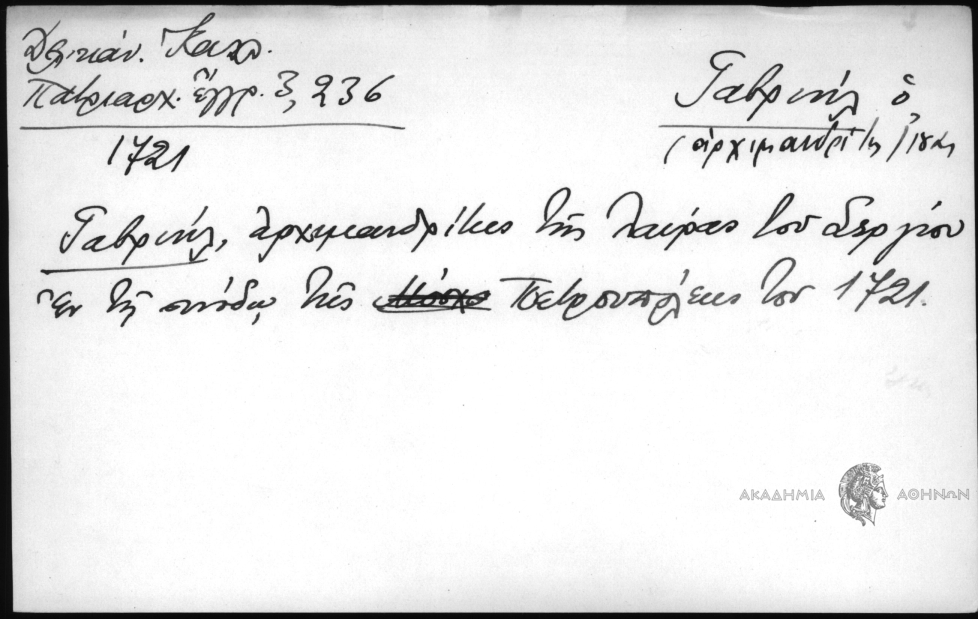 Δελικάν. Καλλ.
Πατριαρχ. ἔγγρ. 3, 236
1721
Γαβριήλ ὁ
(ἀρχιμανδρίτης)
Γαβριήλ, ἀρχιμανδρίτης τῆς Λαύρας τοῦ Σεργίου
Ἐν τῇ συνόδῳ τῆς Πετρουπόλεως τοῦ 1721.
ΑΚΑΔΗΜΙΑ ΑΘΗΝΩΝ